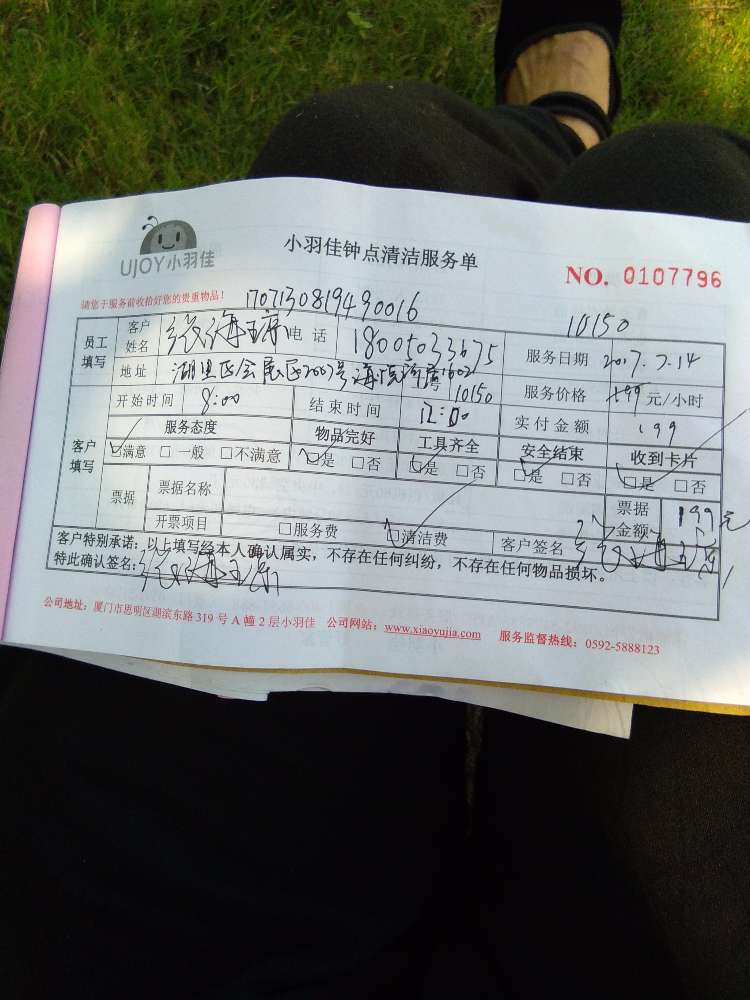 UJOY小羽佳
小羽佳钟点清洁服务单
NO. 0107796
请您于服务前收拾好您的贵重物品!
1707130819490016
10150
员工填写
客户姓名 张海琼 电话 18005033675 服务日期 2017.7.14
地址 湖里区会展区2007号 1602 10150 服务价格 199元/小时
客户填写
开始时间 8:00 结束时间 12:00 实付金额 199
服务态度 物品完好 工具齐全 安全结束 收到卡片
☑满意 □一般 □不满意 ☑是 □否 ☑是 □否 ☑是 □否 ☑是 □否
票据 票据名称 票据金额 199元
开票项目 □服务费 ☑清洁费 客户签名 张海琼
客户特别承诺:以上填写经本人确认属实,不存在任何纠纷,不存在任何物品损坏。
特此确认签名: 张海琼
公司地址:厦门市思明区湖滨东路 319 号 A 幢 2 层小羽佳 公司网站:www.xiaoyujia.com 服务监督热线:0592-5888123